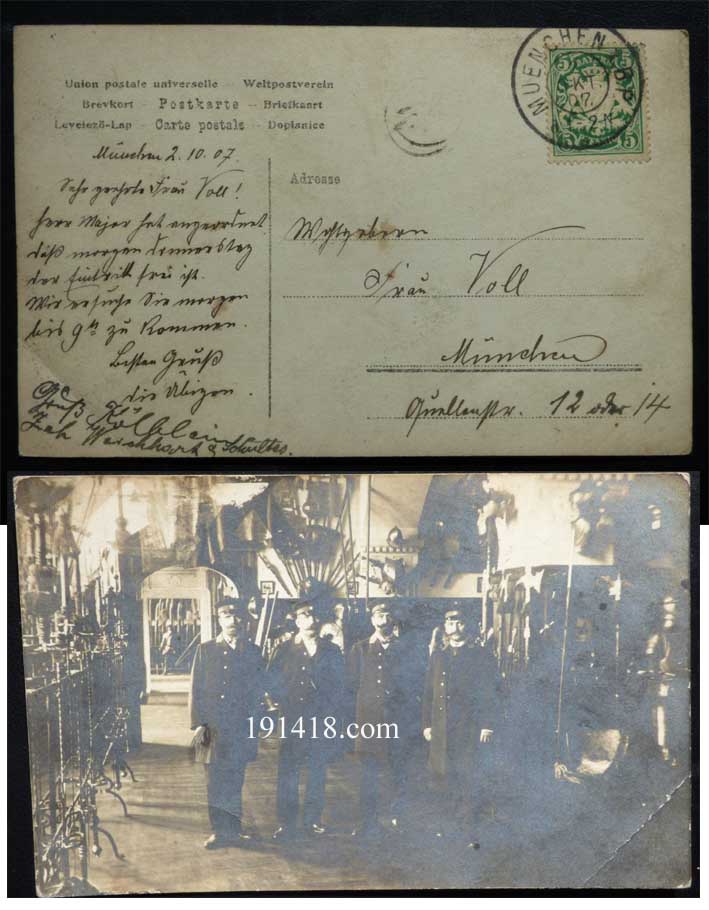 Union postale universelle - Weltpostverein
Brevkort - Postkarte - Briefkaart
Levelező-Lap - Carte postale - Dopisnice
München 2.10.07.
Sehr geehrte Frau Voll!
Herr Major hat angeordnet
daß morgen Donnerstag
der Eintritt frei ist.
Wir ersuche Sie morgen
bis 9 zu kommen.
Besten Gruß
die Übigen.
Gruß
&
Adresse
Frau Voll
München
Quellenstr. 12 oder 14
MUENCHEN
07.
5 5
5 5
191418.com